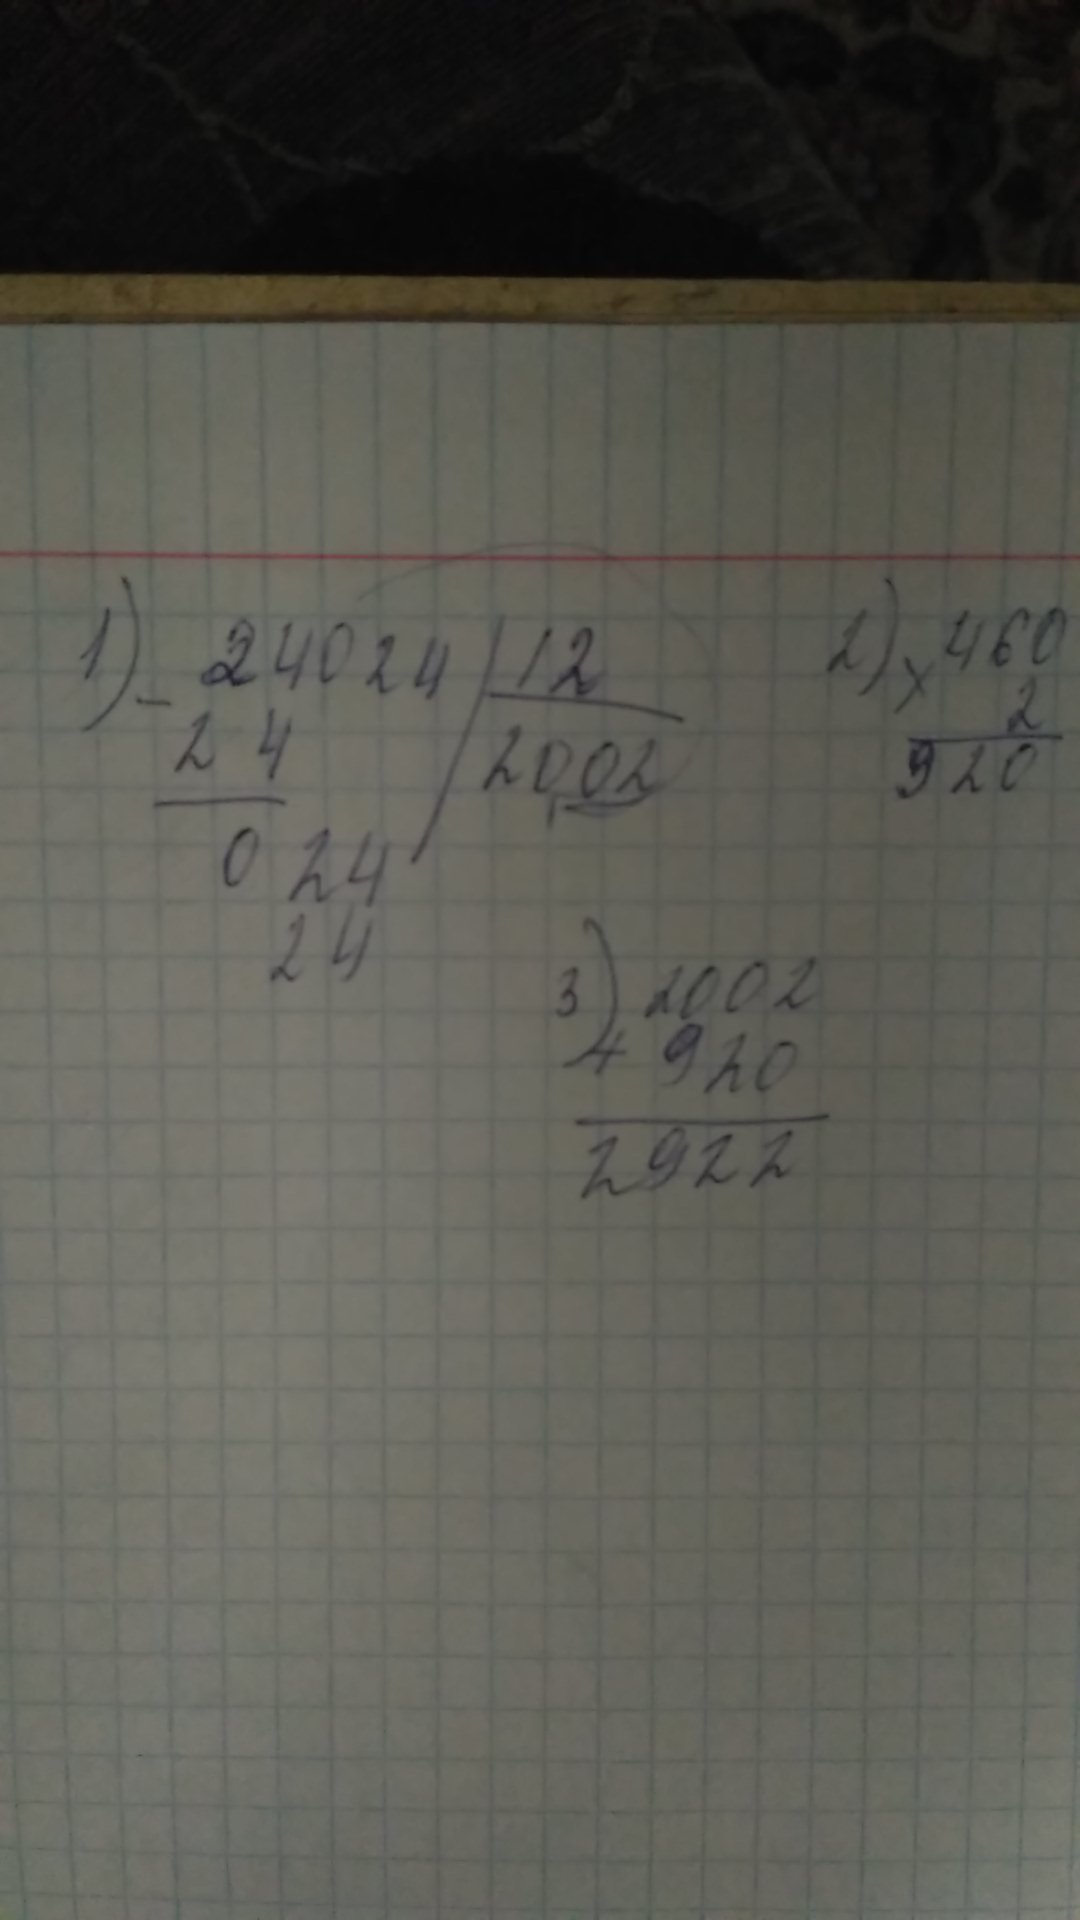 1) - 24024 | 12
24
2002
0 24
24
2) × 460
2
920
3) 2002
+ 920
2922